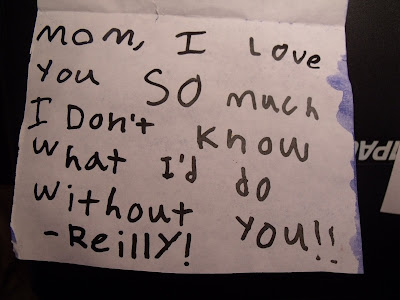 Mom, I Love
You SO much
I Don't Know
what I'd do
without YOU!!
-ReillY!